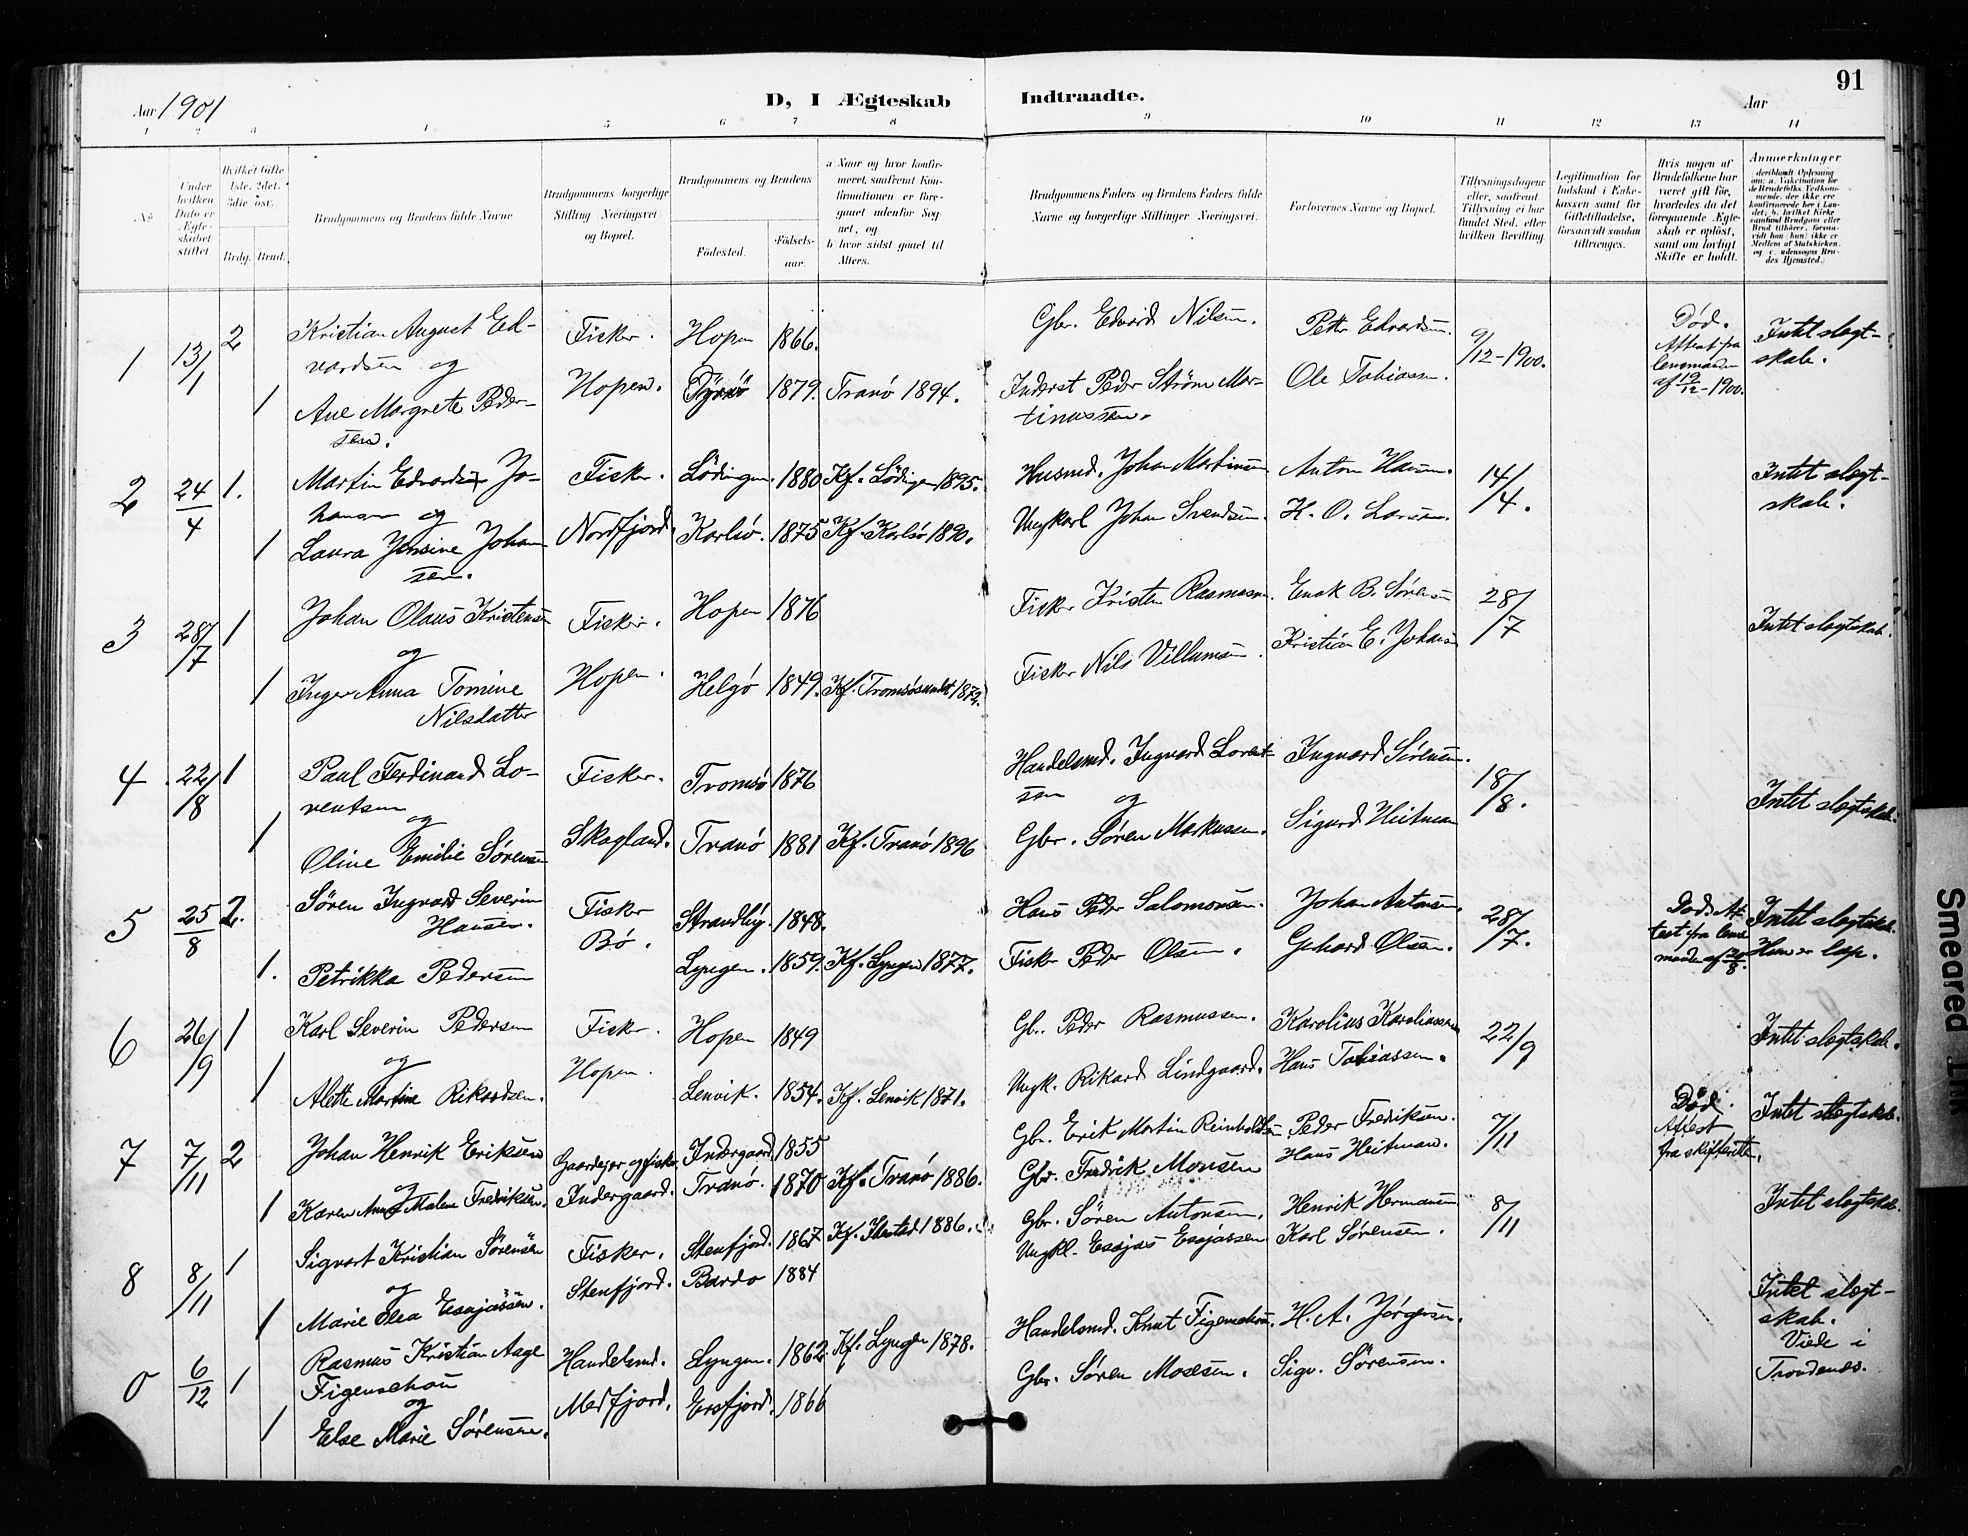 91
Aar 1901
D, I Ægteskab Indtraadte.
Aar
1 2 3 4 5 6 7 8 9 10 11 12 13 14
No.
Under hvilken Dato er Ægteskabet stiftet.
Hvilket Gifte 1ste, 2det, 3die osv.
Brdg. Brud.
Brudgommens og Brudens fulde Navne
Brudgommens borgerlige Stilling (Næringsvei) og Bopæl.
Brudgommens og Brudens
Fødested.
Fødselsaar.
a Naar og hvor konfirmeret, saafremt Konfirmationen er foregaaet udenfor Sognet, og
b hvor sidst gaaet til Alters.
Brudgommens Faders og Brudens Faders fulde Navne og borgerlige Stillinger (Næringsvei).
Forlovernes Navne og Bopæl.
Tillysningsdagene eller, saafremt Tillysning ei har fundet Sted, efter hvilken Bevilling.
Legitimation for Indskud i Enkekassen samt for Giftetilladelse, forsaavidt saadan tiltrænges.
Hvis nogen af Brudefolkene har været gift før, hvorledes da det foregaaende Ægteskab er opløst, samt om lovligt Skifte er holdt.
Anmærkninger (deriblandt Oplysning om: a. Vakcination for de Brudefolks Vedkommende, der ikke ere konfirmerede her i Landet; b. hvilket Kirkesamfund Brudgom eller Brud tilhører, forsaavidt han (hun) ikke er Medlem af Statskirken, og c. udensogns Brudes Hjemsted.)
1 13/1 2 Kristian August Edvardsen og Fisker. Hopen 1866. Gbr. Edvard Nilsen. Petter Edvardsen. 9/12-1900. Død. Attest fra lensmanden af 19/12-1900. Intet slegtskab.
1 Ane Margrete Pedersen. Hopen. Tranø 1879. Tranø 1894. Inderst Peder Strøm Martinussen. Ole Tobiassen.
2 24/4 1. Martin Edvardsen Johansen og Fisker. Lødingen. 1880 Kf. Lødingen 1895. Husmd. Johan Martinsen Anton Hansen. 14/4. Intet slegtskab.
1 Laura Jensine Johansen. Nordfjord. Karlsø. 1875 Kf. Karlsø 1890. Ungkarl Johan Svendsen. H. O. Larsen.
3 28/7 1 Johan Olaus Kristensen og Fisker. Hopen 1876 Fisker Kristen Rasmussen. Enok B. Sørensen 28/7 Intet slegtskab.
1 Inger Anna Tomine Nilsdatter Hopen. Helgø 1849. Kf. Tromsøsundet 1872. Fisker Nils Villumsen. Kristian E. Johansen
4 22/8 1 Paul Ferdinand Lorentsen og Fisker. Tromsø 1876 Handelsmd. Ingvard Lorentsen og Ingvard Sørensen. 18/8. Intet slegtskab.
1 Oline Emilie Sørensen Skogland. Tranø 1881 Kf. Tranø 1896 Gbr. Søren Markussen. Sigurd Heitman
5 25/8 2. Søren Ingvard Severin Hansen. Fisker Bø. Strandby. 1848. Hans Peder Salomonsen. Johan Antonsen. 28/7. Død. Attest fra lensmanden af 20/8. Intet slegtskab. Hun er lap.
1. Petrikka Pedersen Lyngen. 1859. Kf. Lyngen 1877. Fisker Peder Olsen. Gerhard Olsen.
6 26/9 1 Karl Severin Pedersen og Fisker. Hopen 1849 Gbr. Peder Rasmussen. Karolius Karoliussen 22/9 Intet slegtskab.
1 Alette Martine Rikardsen. Hopen. Lenvik. 1854. Kf. Lenvik 1871. Ungk. Rikard Lindgaard. Hans Tobiassen.
7 7/11 2 Johan Henrik Eriksen og Gaardejer og fisker Indergaard 1855 Gbr. Erik Martin Reinholdsen Peder Fredriksen. 7/11 Død. Attest fra skifteretten. Intet slegtskab.
1 Karen Anna Malene Fredriksen. Indergaard. Tranø. 1870 Kf. Tranø 1886. Gbr. Fredrik Monsen Hans Heitman.
8 8/11 1 Sigvart Kristian Sørensen og Fisker. Stenfjord. 1867 Kf. Ibestad 1886. Gbr. Søren Antonsen. Henrik Hermansen 8/11 Intet slegtskab.
1 Marie Elea Esajassen. Stenfjord. Bardo 1884 Ungkl. Esajas Esajassen Karl Sørensen.
0 6/12 1 Rasmus Kristian Aage Figenschou og Handelsmd. Lyngen. 1862 Kf. Lyngen 1878. Handelsmd. Knut Figenschou. H. A. Jørgensen. Intet slegtskab. Viede i Trondenes.
1 Else Marie Sørensen. Medfjord. Ersfjord. 1866 Gbr. Søren Mosesen. Sigv. Sørensen.
Smeared Ink